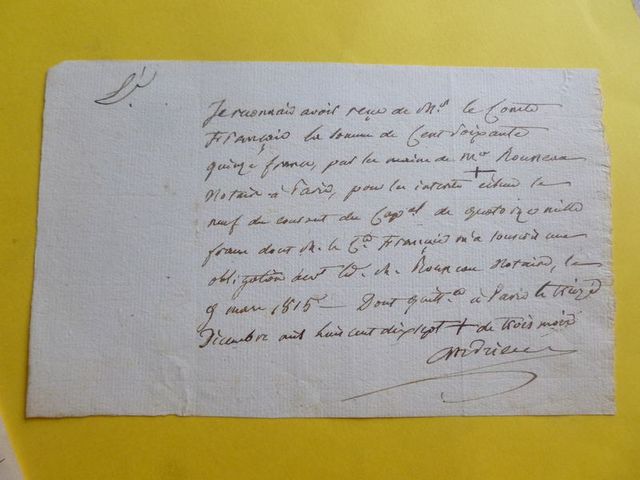 Je reconnais avoir reçu de Mr. le Comte
François la somme de Cent Soixante
quinze francs, par les mains de Mr Rousseau
Notaire à Paris, pour les interets + échus le
neuf du courant du Capal de quatorze mille
francs dont M. le Cte François m'a souscrit une
obligation devt led. M. Rousseau Notaire, le
9 mars 1815 — Dont quitt.ce à Paris le treize
Décembre mil huit cent dix sept + de trois mois
Andrieux